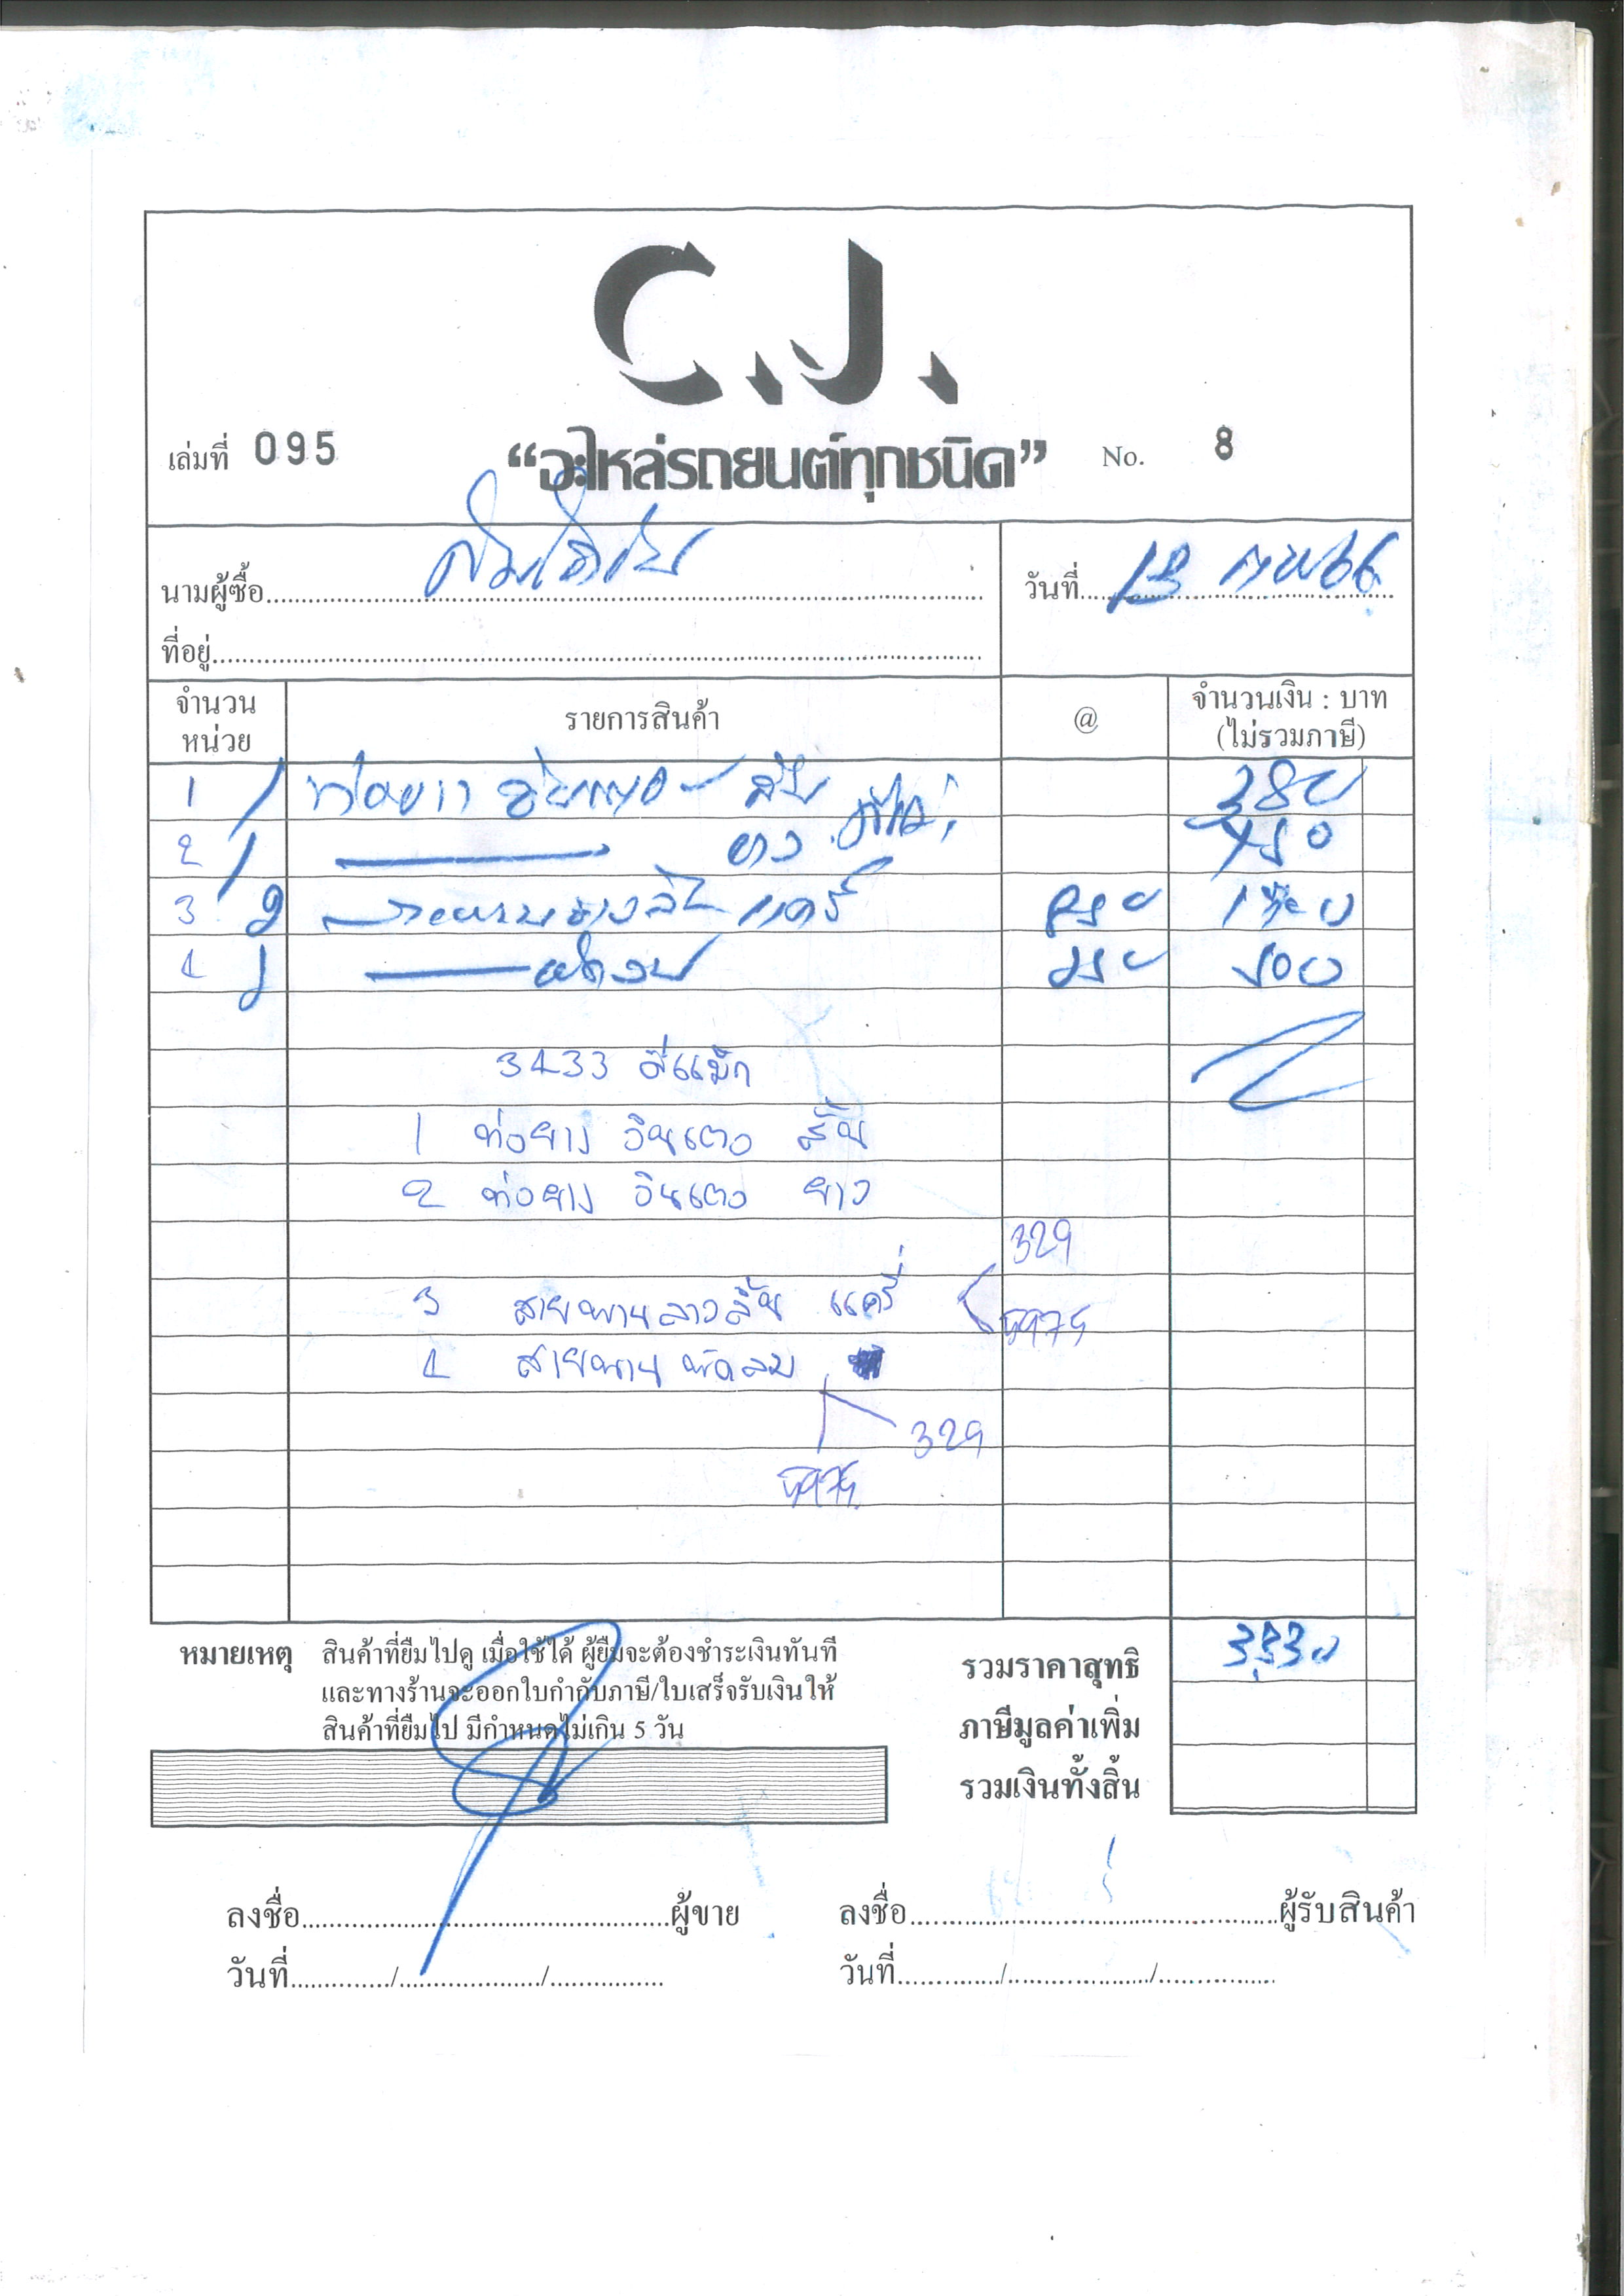 C.J.
เล่มที่ 095 “อะไหล่รถยนต์ทุกชนิด” No. 8
นามผู้ซื้อ
วันที่ 13
ที่อยู่
จำนวน หน่วย รายการสินค้า @ จำนวนเงิน : บาท (ไม่รวมภาษี)
1 1 ท่อยาง สั้น 380
2 1 ยาว 750
3 2 แคร์
4 2 500
3433 ดีแม็ก
1 ท่อยาง อินเตอ สั้น
2 ท่อยาง อินเตอ ยาว
329
3 สายพานลาวลิ้น แคร์รี่
5975
4 สายพาน พัดลม
329
5975
หมายเหตุ สินค้าที่ยืมไปดู เมื่อใช้ได้ ผู้ยืมจะต้องชำระเงินทันที
และทางร้านจะออกใบกำกับภาษี/ใบเสร็จรับเงินให้
สินค้าที่ยืมไป มีกำหนดไม่เกิน 5 วัน
รวมราคาสุทธิ 3330
ภาษีมูลค่าเพิ่ม
รวมเงินทั้งสิ้น
ลงชื่อ ผู้ขาย ลงชื่อ ผู้รับสินค้า
วันที่ / / วันที่ / /